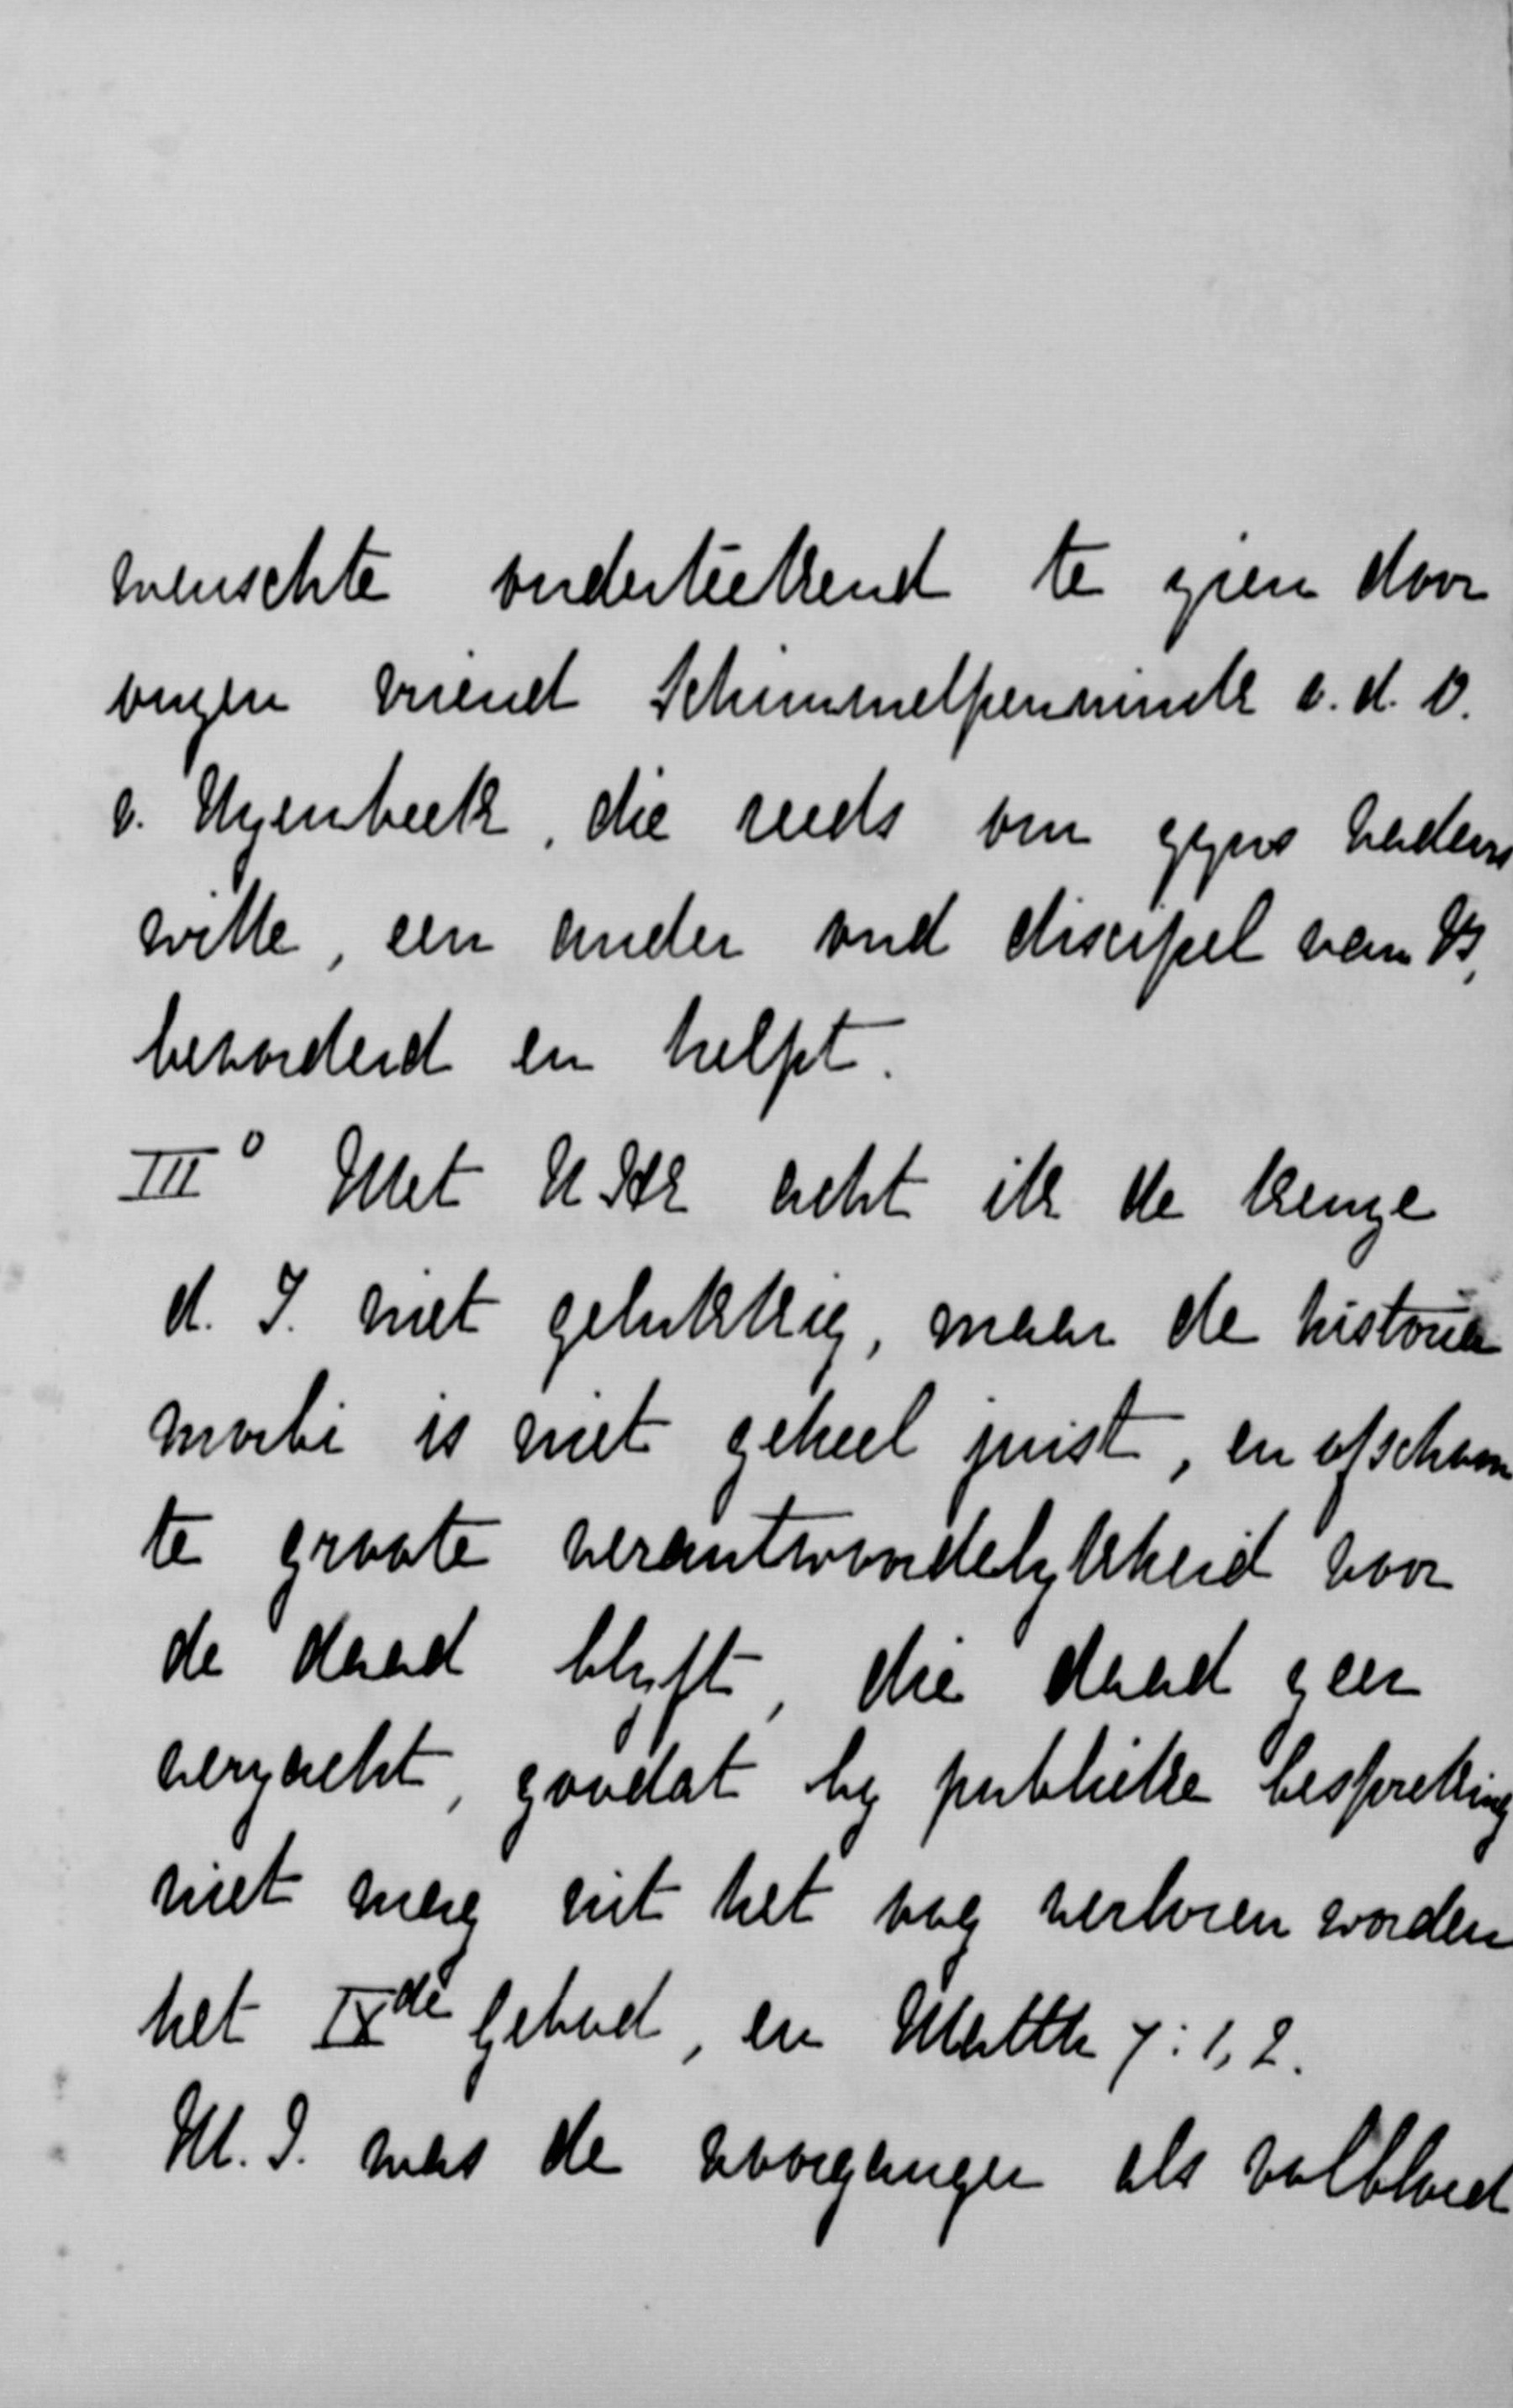 wenschte onderteekend te zien door
onzen vriend Schimmelpenninck v. d. O.
v. Nyenbeek, die reeds om zyns vaders
wille, een ander oud discipel van B,
bevorderd en helpt.
III° Met U HE acht ik de keuze
d. J. niet gelukkig, maar de historia
morbi is niet geheel juist, en ofschoon
te groote verantwoordelykheid voor
de daad blyft, die daad zeer
verzacht, zoodat by publieke bespreking
niet mag uit het oog verloren worden
het IXde Gebod, en Matth 7:1, 2.
M. J. was de voorganger als volbloed